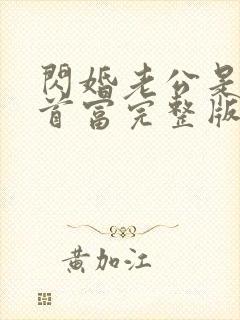 閃婚老公是
首富完整版
黃加江